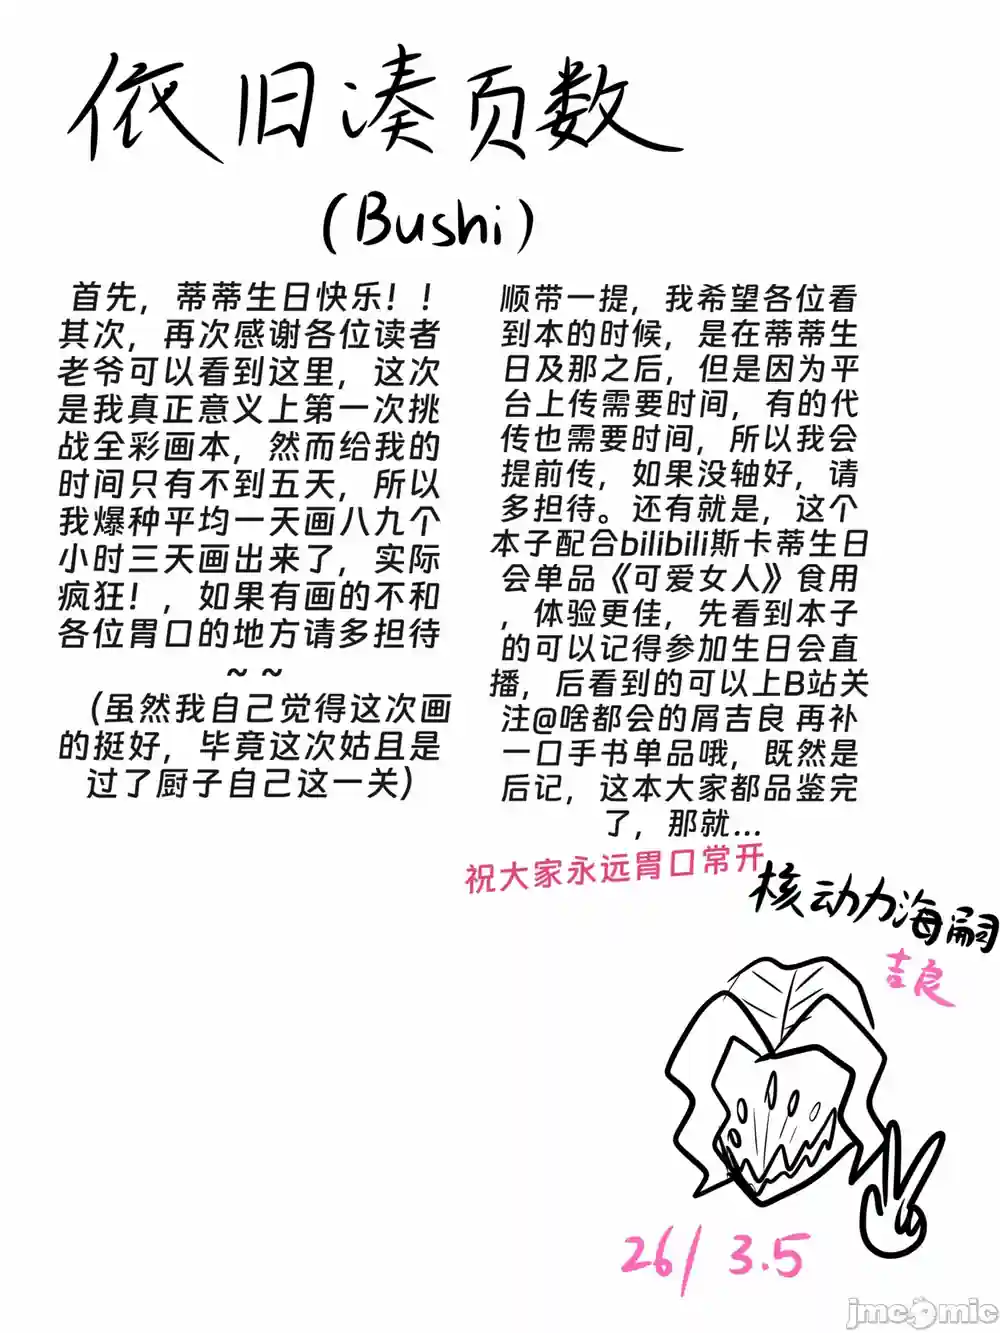 依旧凑页数
(Bushi)
首先，蒂蒂生日快乐！！
其次，再次感谢各位读者
老爷可以看到这里，这次
是我真正意义上第一次挑
战全彩画本，然而给我的
时间只有不到五天，所以
我爆种平均一天画八九个
小时三天画出来了，实际
疯狂！，如果有画的不和
各位胃口的地方请多担待
~ ~
（虽然我自己觉得这次画
的挺好，毕竟这次姑且是
过了厨子自己这一关）
顺带一提，我希望各位看
到本的时候，是在蒂蒂生
日及那之后，但是因为平
台上传需要时间，有的代
传也需要时间，所以我会
提前传，如果没轴好，请
多担待。还有就是，这个
本子配合bilibili斯卡蒂生日
会单品《可爱女人》食用
，体验更佳，先看到本子
的可以记得参加生日会直
播，后看到的可以上B站关
注@啥都会的屑吉良 再补
一口手书单品哦，既然是
后记，这本大家都品鉴完
了，那就...
祝大家永远胃口常开
核动力海嗣
吉良
26/3.5
jmcomic